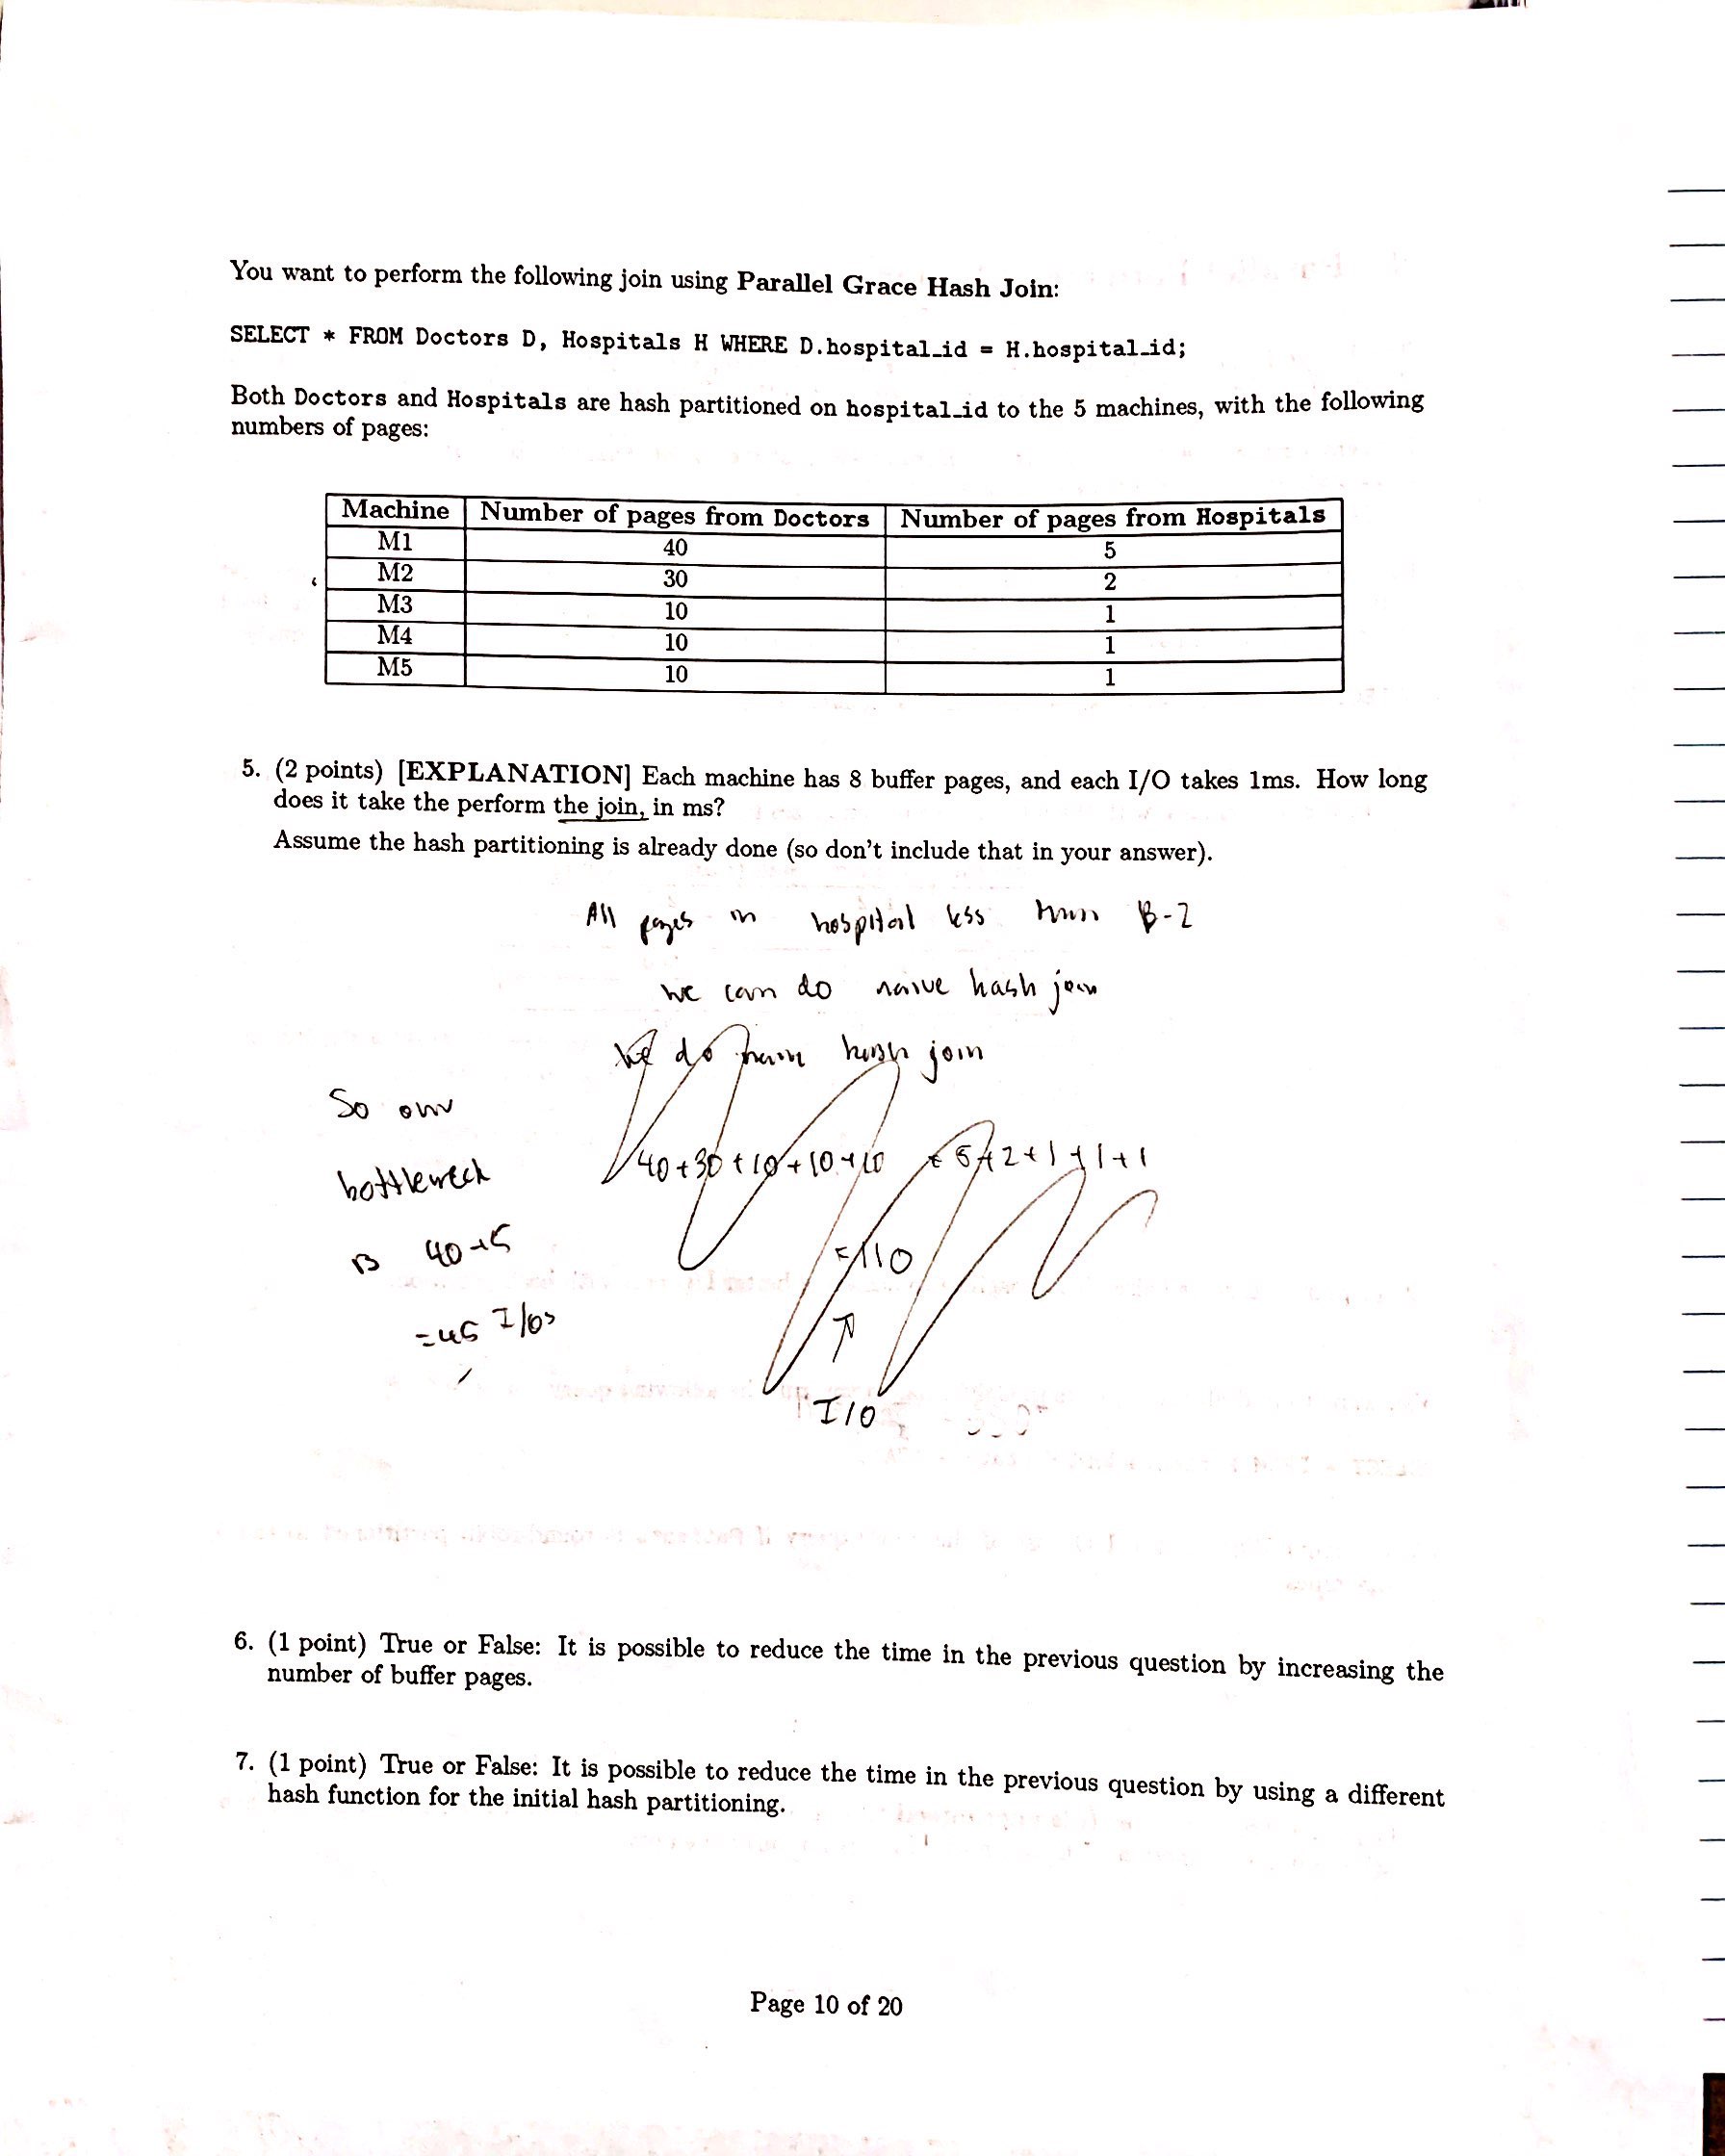 You want to perform the following join using Parallel Grace Hash Join:
SELECT * FROM Doctors D, Hospitals H WHERE D.hospital_id = H.hospital_id;
Both Doctors and Hospitals are hash partitioned on hospital_id to the 5 machines, with the following
numbers of pages:
Machine Number of pages from Doctors Number of pages from Hospitals
M1 40 5
M2 30 2
M3 10 1
M4 10 1
M5 10 1
5. (2 points) [EXPLANATION] Each machine has 8 buffer pages, and each I/O takes 1ms. How long
does it take the perform the join, in ms?
Assume the hash partitioning is already done (so don't include that in your answer).
All pages in hospital less than B-2
we can do naive hash join
we do hash join
So our
bottleneck
40+30+10+10+10 + 5+2+1+1+1
is 40+5
=110
=45 I/Os
↑
I/O
6. (1 point) True or False: It is possible to reduce the time in the previous question by increasing the
number of buffer pages.
7. (1 point) True or False: It is possible to reduce the time in the previous question by using a different
hash function for the initial hash partitioning.
Page 10 of 20